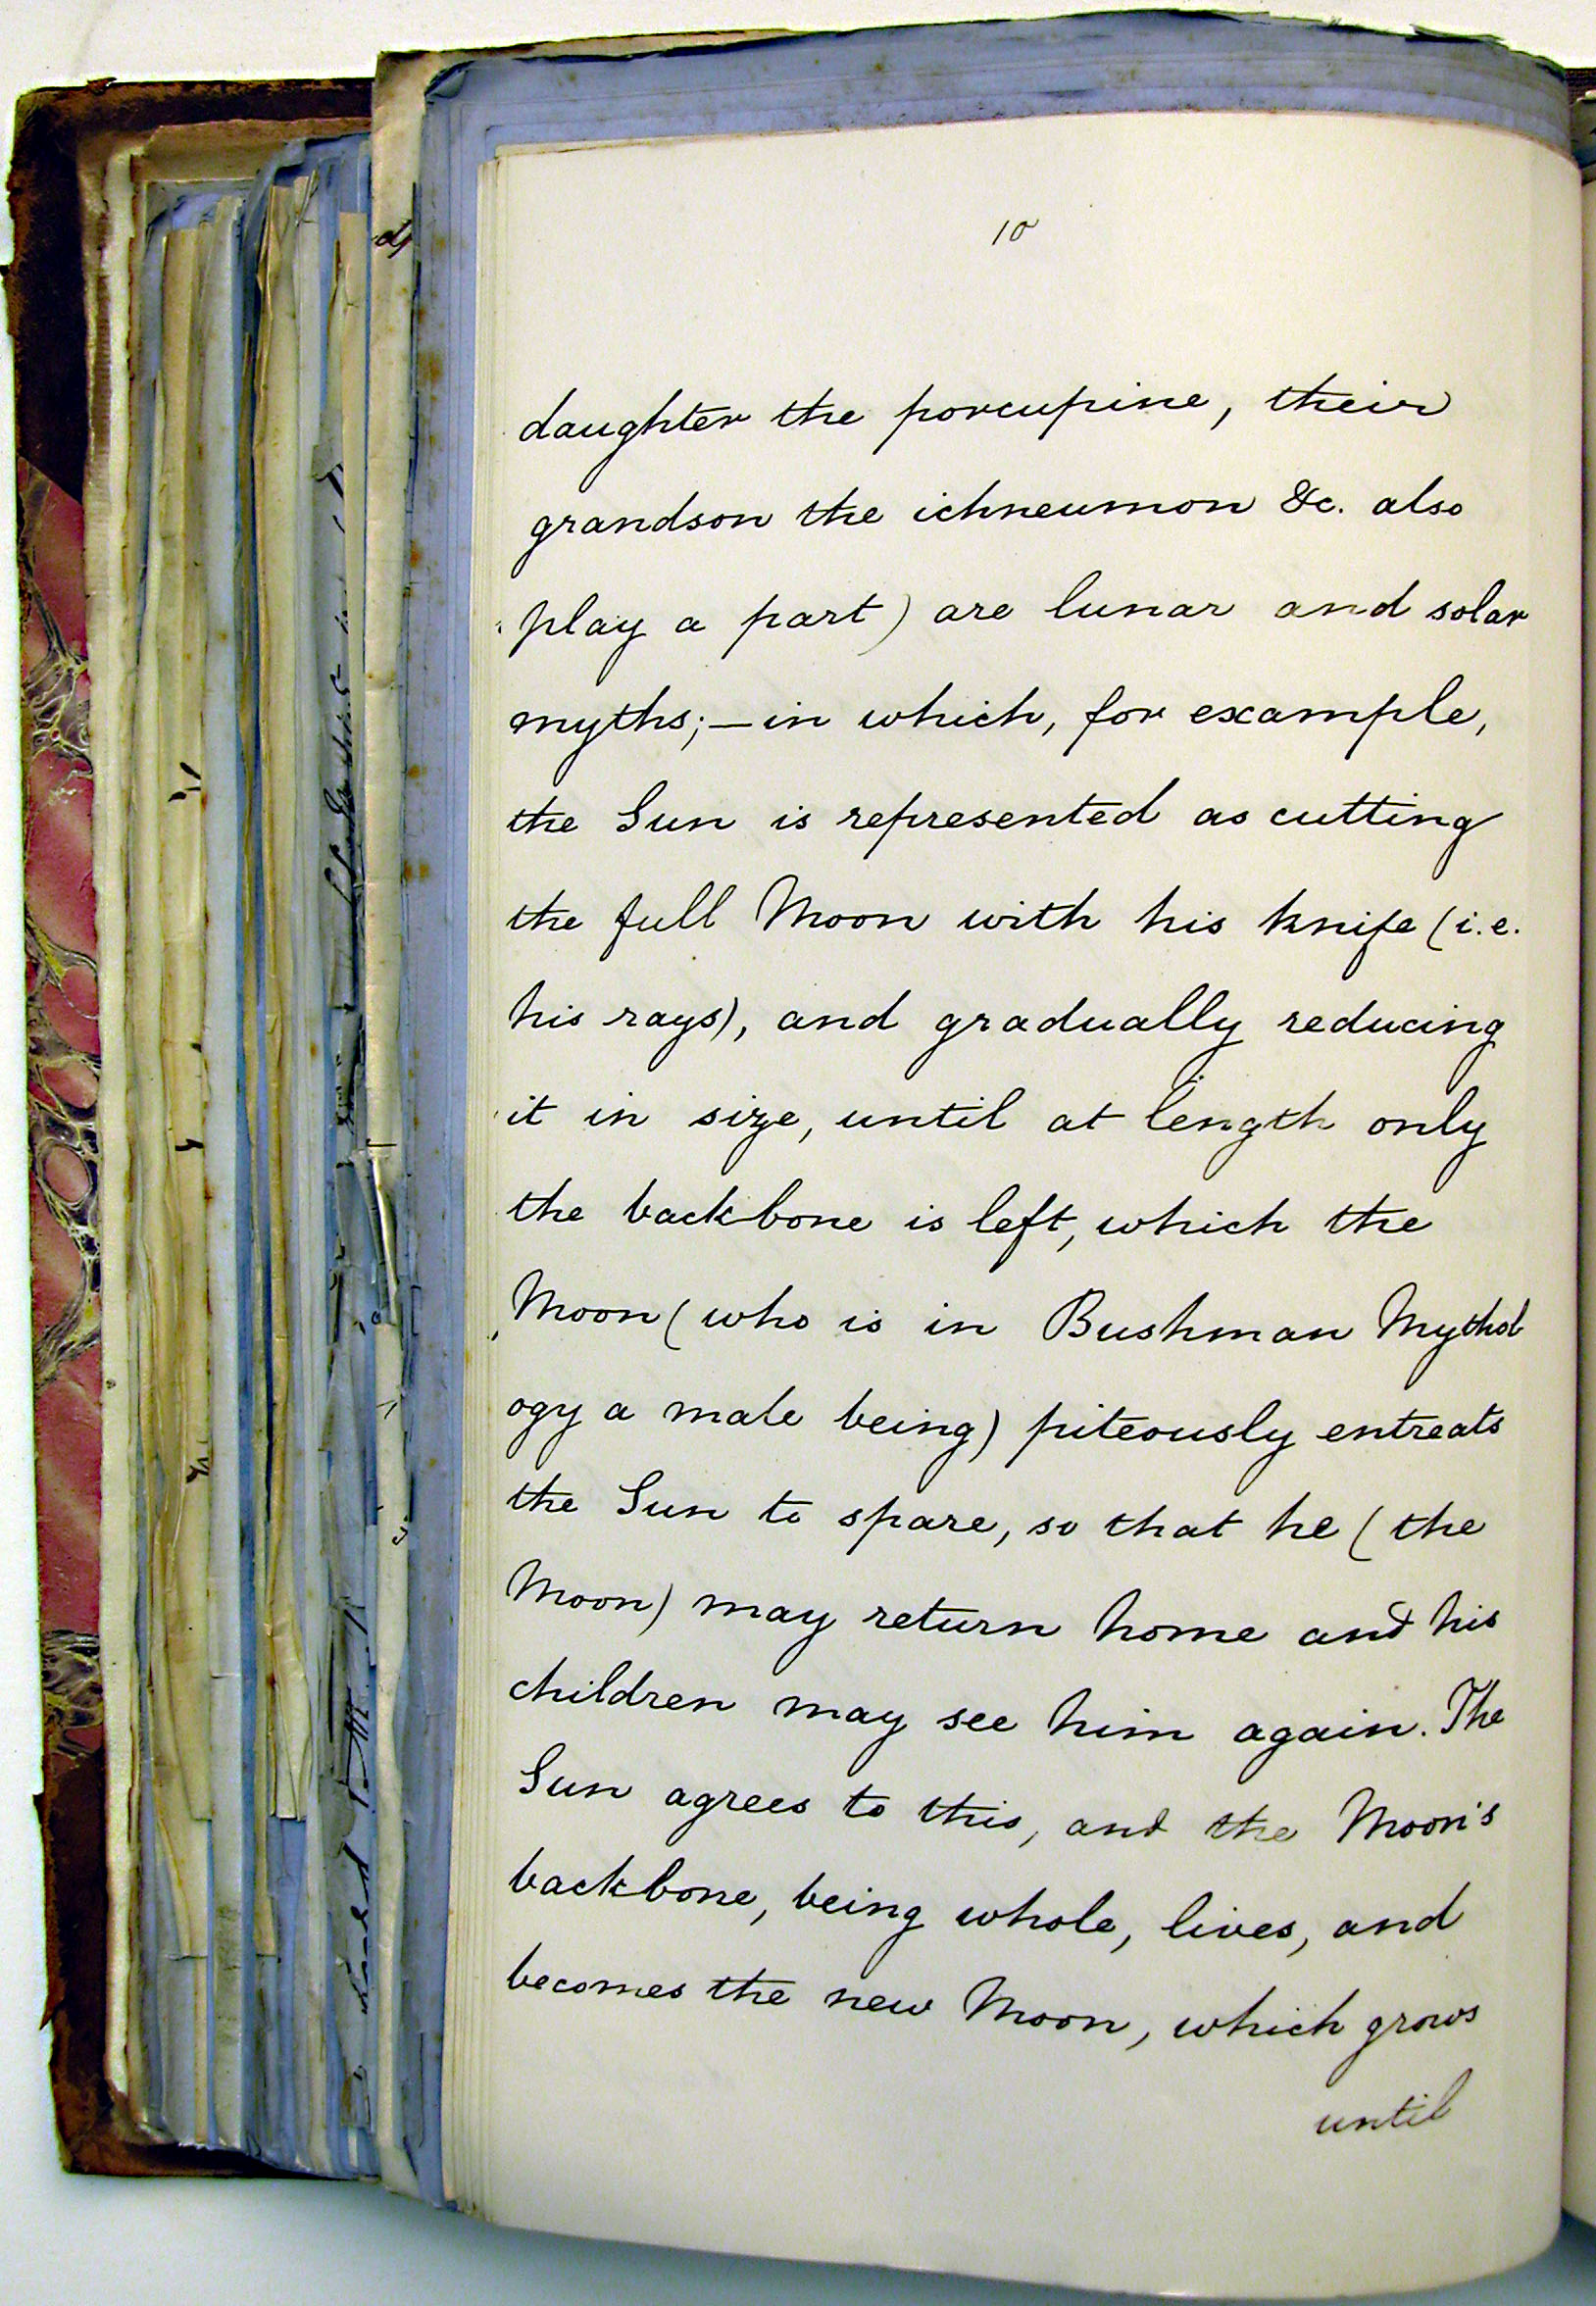 10
daughter the porcupine, their
grandson the ichneumon &c. also
play a part) are lunar and solar
myths;—in which, for example,
the Sun is represented as cutting
the full Moon with his knife (i.e.
his rays), and gradually reducing
it in size, until at length only
the backbone is left, which the
Moon (who is in Bushman Mythol
ogy a male being) piteously entreats
the Sun to spare, so that he (the
Moon) may return home and his
children may see him again. The
Sun agrees to this, and the Moon's
backbone, being whole, lives, and
becomes the new Moon, which grows
until